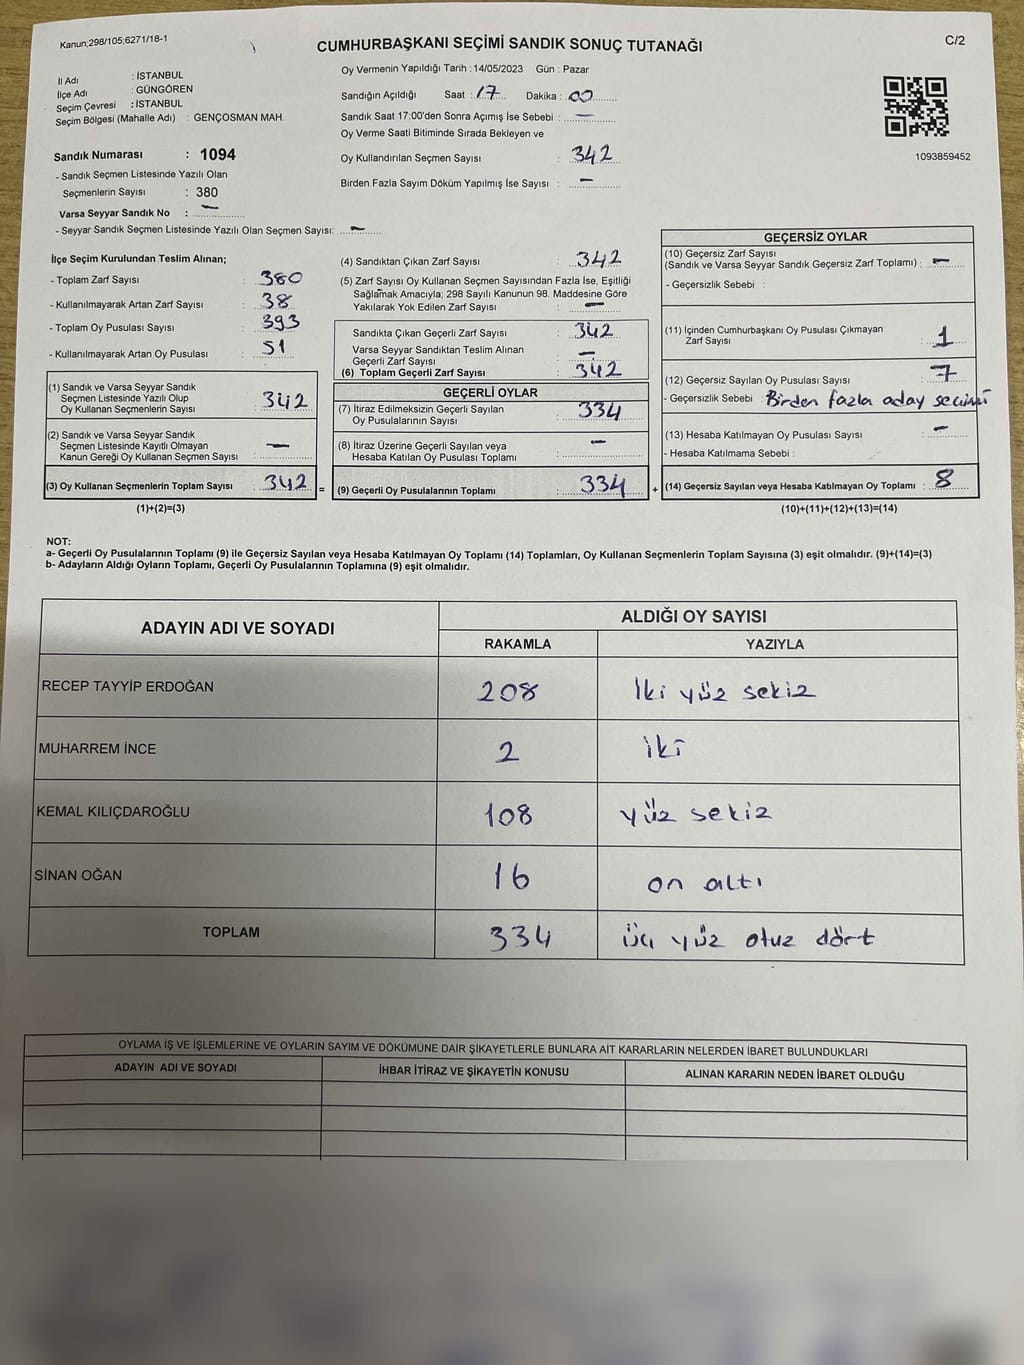 Kanun;298/105;6271/18-1
CUMHURBAŞKANI SEÇİMİ SANDIK SONUÇ TUTANAĞI
C/2
İl Adı : İSTANBUL
İlçe Adı : GÜNGÖREN
Seçim Çevresi : İSTANBUL
Seçim Bölgesi (Mahalle Adı) : GENÇOSMAN MAH.
Sandık Numarası : 1094
- Sandık Seçmen Listesinde Yazılı Olan
Seçmenlerin Sayısı : 380
Varsa Seyyar Sandık No : —
- Seyyar Sandık Seçmen Listesinde Yazılı Olan Seçmen Sayısı: —
Oy Vermenin Yapıldığı Tarih : 14/05/2023 Gün : Pazar
Sandığın Açıldığı Saat : 17 Dakika : 00
Sandık Saat 17:00'den Sonra Açımış İse Sebebi : —
Oy Verme Saati Bitiminde Sırada Bekleyen ve
Oy Kullandırılan Seçmen Sayısı : 342
Birden Fazla Sayım Döküm Yapılmış İse Sayısı : —
1093859452
İlçe Seçim Kurulundan Teslim Alınan;
- Toplam Zarf Sayısı : 380
- Kullanılmayarak Artan Zarf Sayısı : 38
- Toplam Oy Pusulası Sayısı : 393
- Kullanılmayarak Artan Oy Pusulası : 51
(1) Sandık ve Varsa Seyyar Sandık
Seçmen Listesinde Yazılı Olup
Oy Kullanan Seçmenlerin Sayısı : 342
(2) Sandık ve Varsa Seyyar Sandık
Seçmen Listesinde Kayıtlı Olmayan
Kanun Gereği Oy Kullanan Seçmen Sayısı : —
(3) Oy Kullanan Seçmenlerin Toplam Sayısı : 342 =
(1)+(2)=(3)
(4) Sandıktan Çıkan Zarf Sayısı : 342
(5) Zarf Sayısı Oy Kullanan Seçmen Sayısından Fazla İse, Eşitliği
Sağlamak Amacıyla; 298 Sayılı Kanunun 98. Maddesine Göre
Yakılarak Yok Edilen Zarf Sayısı : —
Sandıkta Çıkan Geçerli Zarf Sayısı : 342
Varsa Seyyar Sandıktan Teslim Alınan
Geçerli Zarf Sayısı : —
(6) Toplam Geçerli Zarf Sayısı : 342
GEÇERLİ OYLAR
(7) İtiraz Edilmeksizin Geçerli Sayılan
Oy Pusulalarının Sayısı : 334
(8) İtiraz Üzerine Geçerli Sayılan veya
Hesaba Katılan Oy Pusulası Toplamı : —
(9) Geçerli Oy Pusulalarının Toplamı : 334 +
GEÇERSİZ OYLAR
(10) Geçersiz Zarf Sayısı
(Sandık ve Varsa Seyyar Sandık Geçersiz Zarf Toplamı) : —
- Geçersizlik Sebebi :
(11) İçinden Cumhurbaşkanı Oy Pusulası Çıkmayan
Zarf Sayısı : 1
(12) Geçersiz Sayılan Oy Pusulası Sayısı : 7
- Geçersizlik Sebebi : Birden fazla aday seçimi
(13) Hesaba Katılmayan Oy Pusulası Sayısı : —
- Hesaba Katılmama Sebebi :
(14) Geçersiz Sayılan veya Hesaba Katılmayan Oy Toplamı : 8
(10)+(11)+(12)+(13)=(14)
NOT:
a- Geçerli Oy Pusulalarının Toplamı (9) ile Geçersiz Sayılan veya Hesaba Katılmayan Oy Toplamı (14) Toplamları, Oy Kullanan Seçmenlerin Toplam Sayısına (3) eşit olmalıdır. (9)+(14)=(3)
b- Adayların Aldığı Oyların Toplamı, Geçerli Oy Pusulalarının Toplamına (9) eşit olmalıdır.
ADAYIN ADI VE SOYADI
ALDIĞI OY SAYISI
RAKAMLA YAZIYLA
RECEP TAYYİP ERDOĞAN 208 İki yüz sekiz
MUHARREM İNCE 2 iki
KEMAL KILIÇDAROĞLU 108 yüz sekiz
SİNAN OĞAN 16 on altı
TOPLAM 334 üç yüz otuz dört
OYLAMA İŞ VE İŞLEMLERİNE VE OYLARIN SAYIM VE DÖKÜMÜNE DAİR ŞİKAYETLERLE BUNLARA AİT KARARLARIN NELERDEN İBARET BULUNDUKLARI
ADAYIN ADI VE SOYADI İHBAR İTİRAZ VE ŞİKAYETİN KONUSU ALINAN KARARIN NEDEN İBARET OLDUĞU